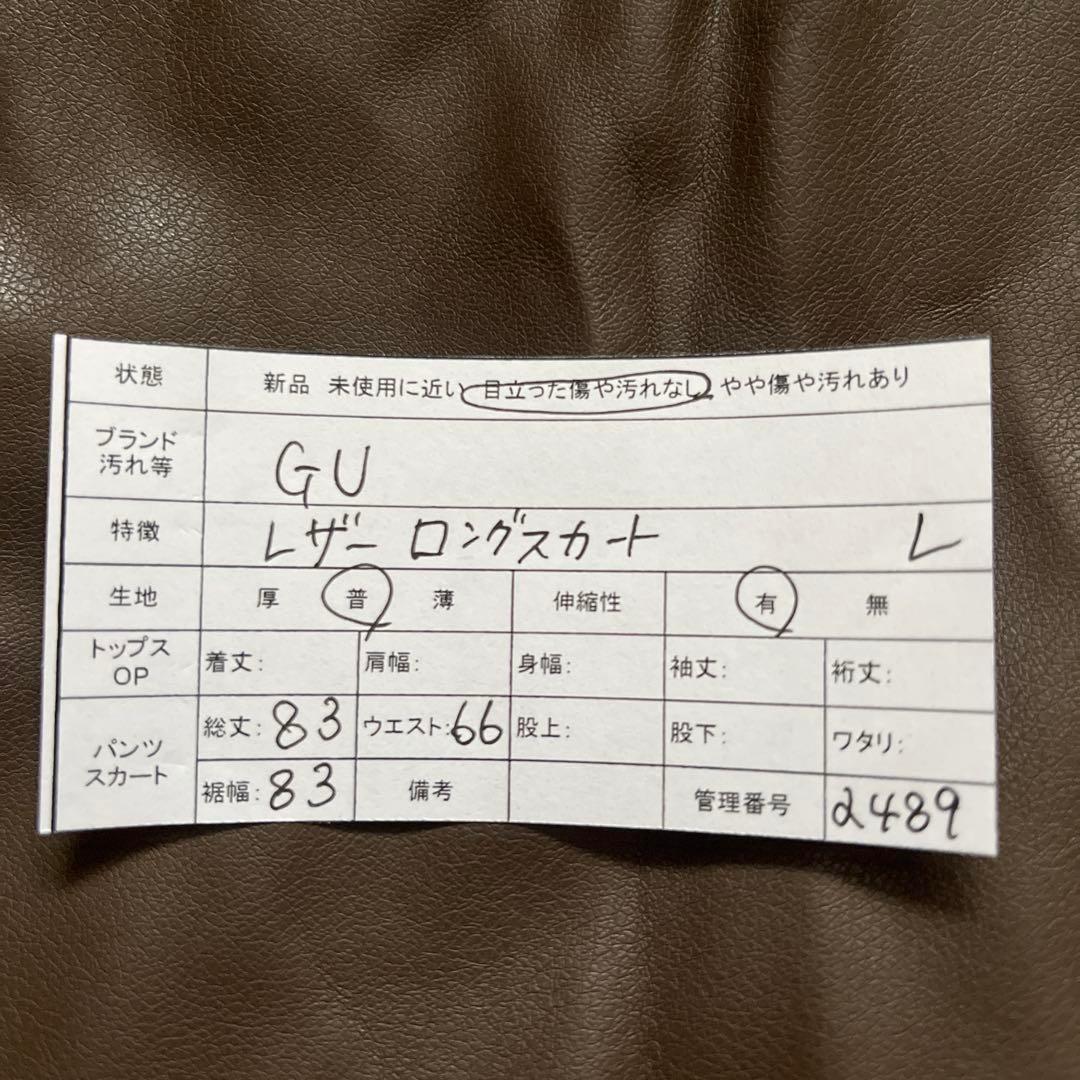 状態 新品 未使用に近い 目立った傷や汚れなし やや傷や汚れあり
ブランド
汚れ等 GU
特徴 レザー ロングスカート L
生地 厚 普 薄 伸縮性 有 無
トップス
OP 着丈: 肩幅: 身幅: 袖丈: 裄丈:
パンツ
スカート
総丈:83 ウエスト:66 股上: 股下: ワタリ:
裾幅:83 備考 管理番号 2489